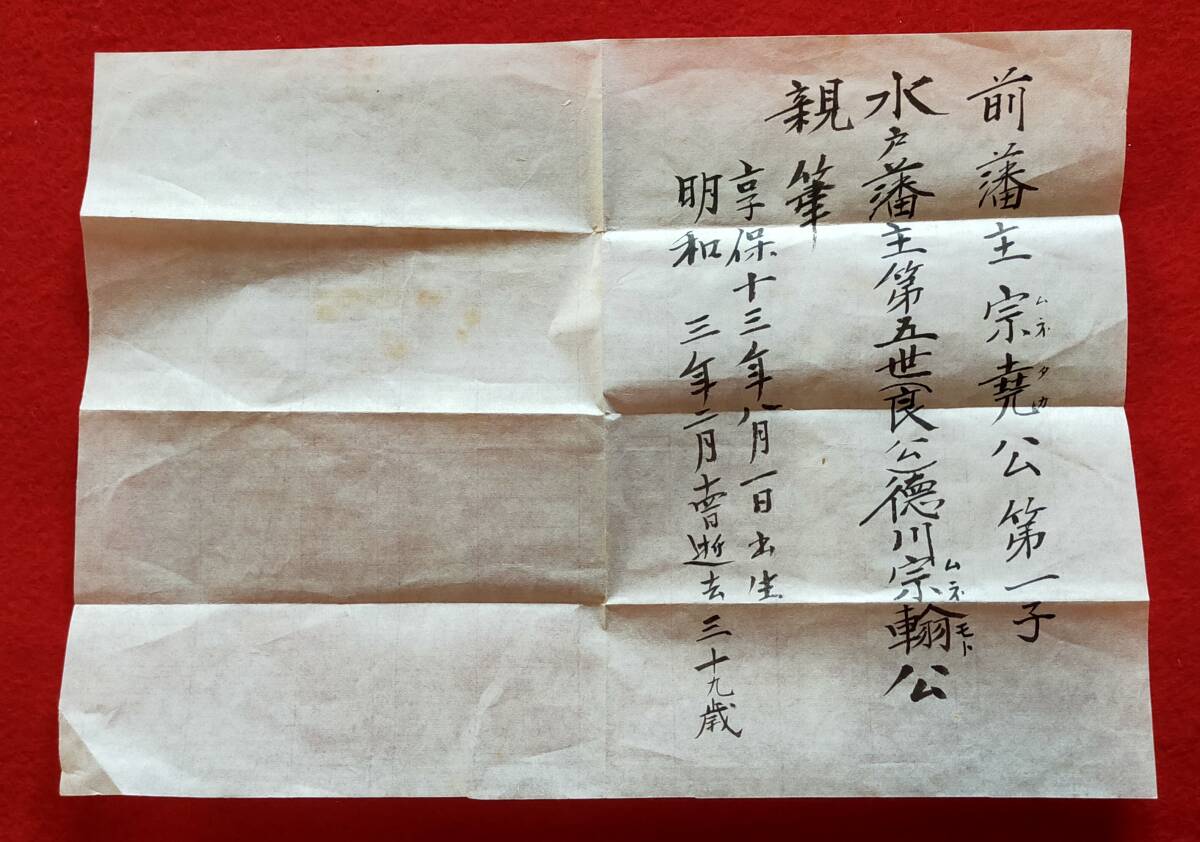 前藩主宗堯公第一子
ムネタカ
水戸藩主第五世(良公)徳川宗翰公
ムネモト
親筆
享保十三年八月一日出生
明和 三年二月十四日逝去 三十九歳